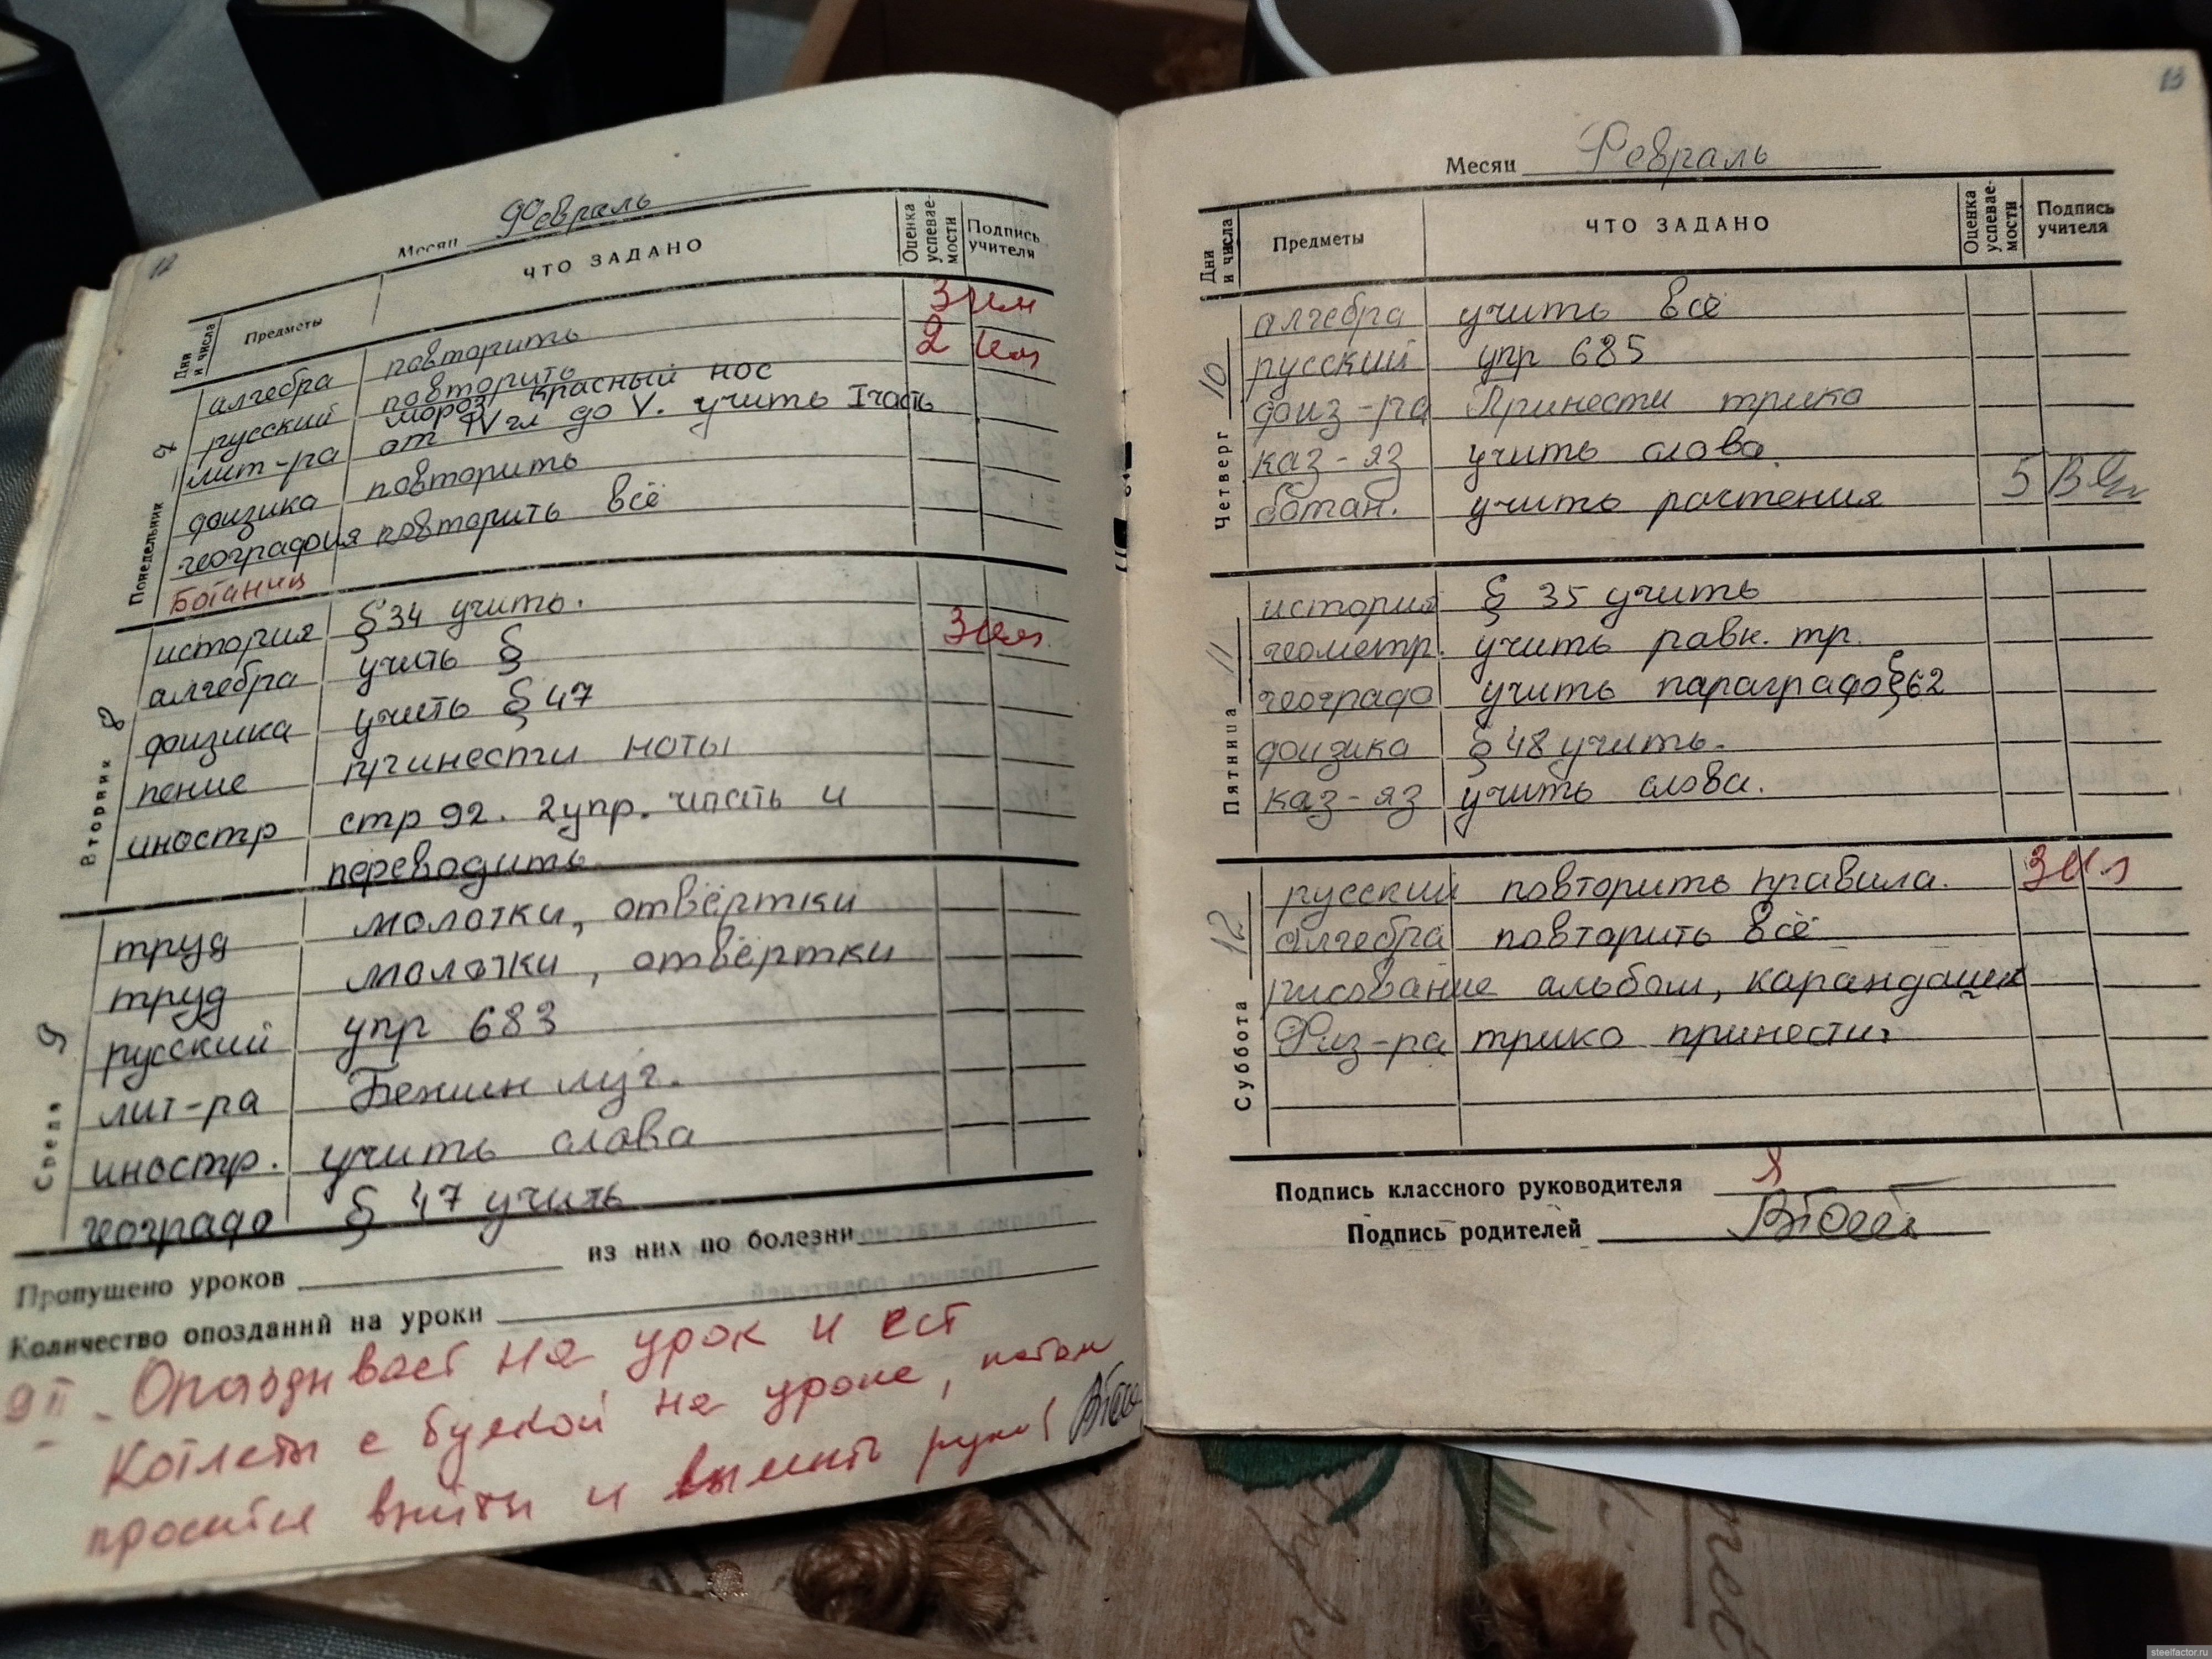 12
Месяц Февраль
Дни и числа
Предметы
ЧТО ЗАДАНО
Оценка успевае-мости
Подпись учителя
Понедельник 7
алгебра повторить 3
русский повторить 2
мороз красный нос
лит-ра от IV гл до V. учить I часть
физика повторить
география повторить всё
Ботаник
Вторник 8
история § 34 учить.
алгебра учить § 3
физика учить § 47
пение принести ноты
иностр стр 92. 2 упр. читать и
переводить.
Среда 9
труд молотки, отвёртки
труд молотки, отвёртки
русский упр 683
лит-ра Бежин луг.
иностр. учить слова
географ § 47 учить
Пропущено уроков
из них по болезни
Количество опозданий на уроки
9 II - Опаздывает на урок и ест
Котлеты с булкой на уроке, потом
просится выйти и вымыть руки!
13
Месяц Февраль
Дни и числа
Предметы
ЧТО ЗАДАНО
Оценка успевае-мости
Подпись учителя
Четверг 10
алгебра учить всё
русский упр 685
физ-ра Принести трико
каз-яз учить слова.
ботан. учить растения 5
Пятница 11
история § 35 учить
геометр. учить равн. тр.
географ учить параграф § 62
физика § 48 учить.
каз-яз учить слова.
Суббота 12
русский повторить правила. 3
алгебра повторить всё
рисование альбом, карандаши
Физ-ра трико принести.
Подпись классного руководителя
Подпись родителей
steelfactor.ru